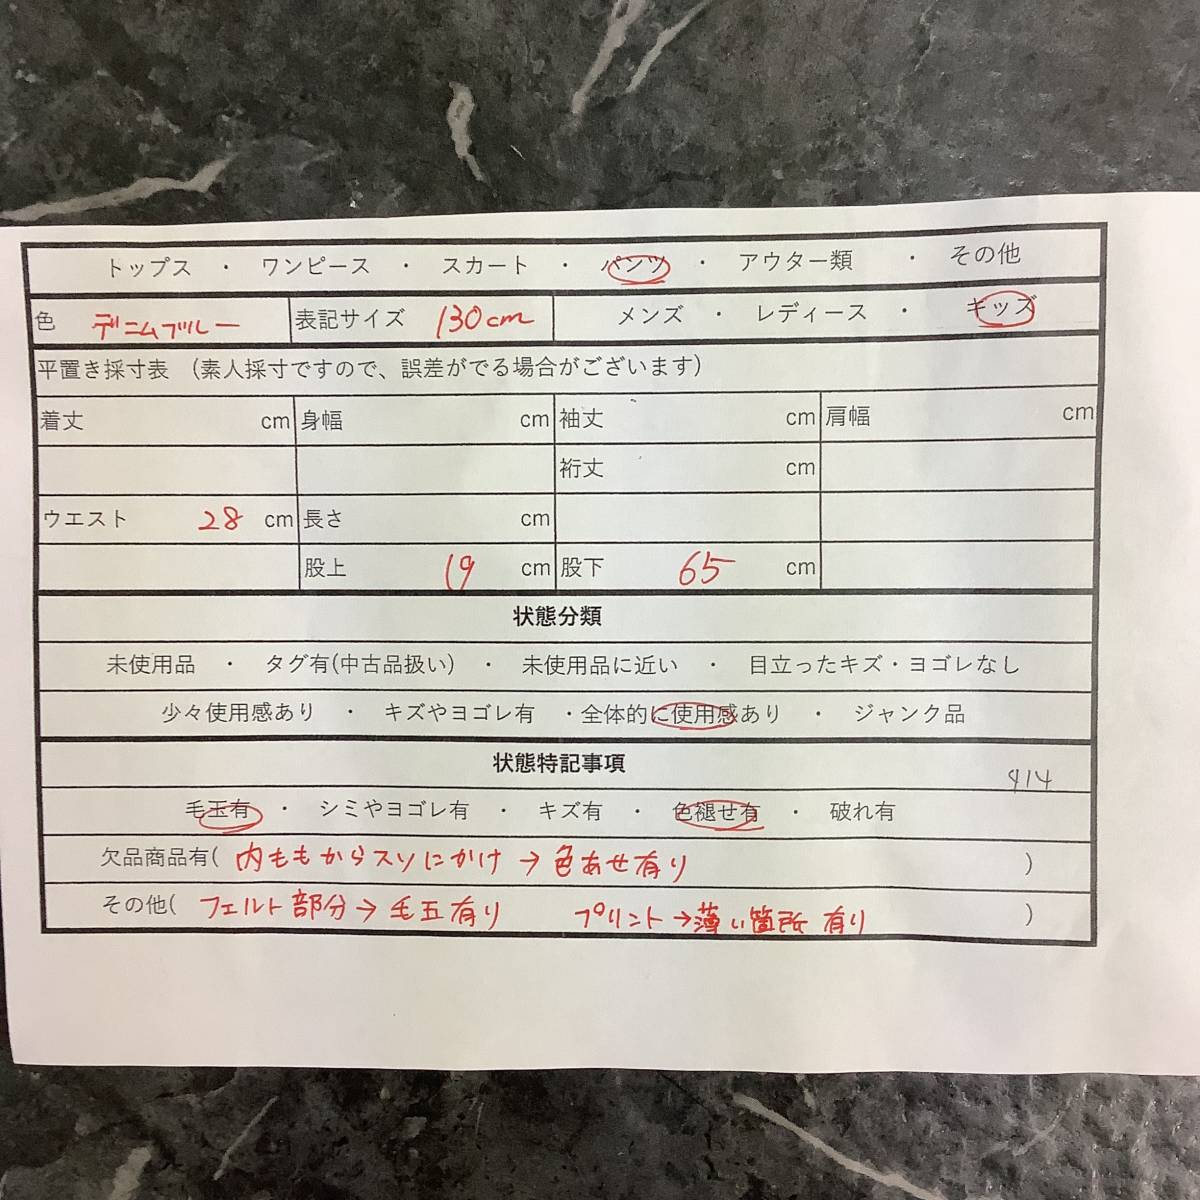 トップス ・ ワンピース ・ スカート ・ パンツ ・ アウター類 ・ その他
色 デニムブルー 表記サイズ 130cm メンズ ・ レディース ・ キッズ
平置き採寸表 (素人採寸ですので、誤差がでる場合がございます)
着丈 cm 身幅 cm 袖丈 cm 肩幅 cm
裄丈 cm
ウエスト 28 cm 長さ cm
股上 19 cm 股下 65 cm
状態分類
未使用品 ・ タグ有(中古品扱い) ・ 未使用品に近い ・ 目立ったキズ・ヨゴレなし
少々使用感あり ・ キズやヨゴレ有 ・全体的に使用感あり ・ ジャンク品
状態特記事項 814
毛玉有 ・ シミやヨゴレ有 ・ キズ有 ・ 色褪せ有 ・ 破れ有
欠品商品有( 内ももからスソにかけ → 色あせ有り )
その他( フェルト部分→ 毛玉有り プリント→薄い箇所 有り )